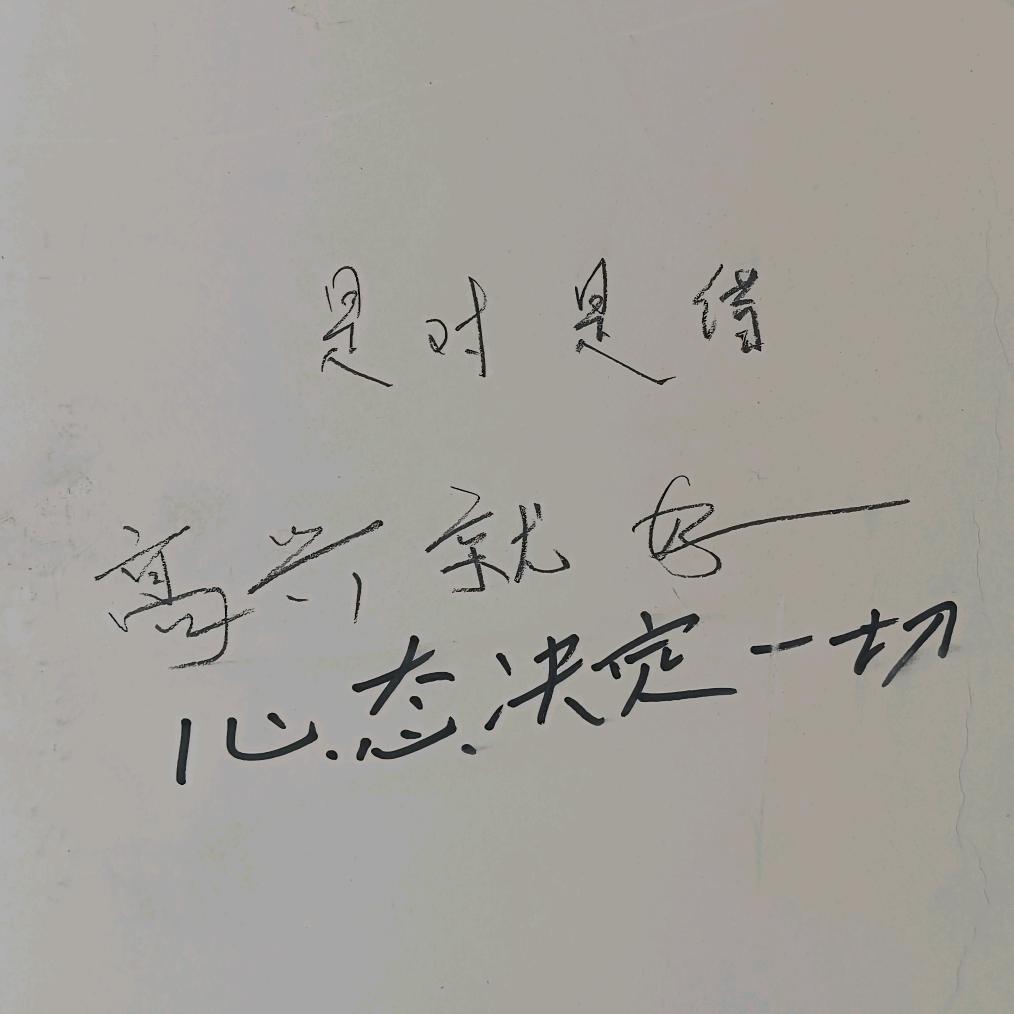 是对是错
高兴就好
心态决定一切